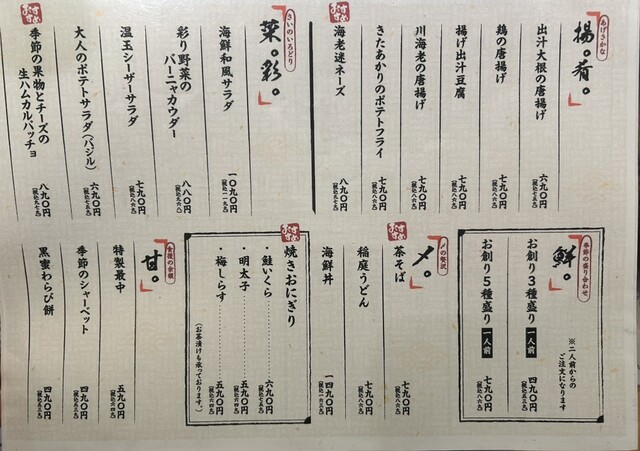 あげさかな
揚。肴。
出汁大根の唐揚げ
六九〇円
(税込七五九)
鶏の唐揚げ
七九〇円
(税込八六九)
揚げ出汁豆腐
七九〇円
(税込八六九)
川海老の唐揚げ
七九〇円
(税込八六九)
きたあかりのポテトフライ
七九〇円
(税込八六九)
おすすめ
海老迷ネーズ
八九〇円
(税込九七九)
さいのいろどり
菜。彩。
海鮮和風サラダ
一〇九〇円
彩り野菜の
バーニャカウダー
八八〇円
(税込九六八)
温玉シーザーサラダ
七九〇円
(税込八六九)
大人のポテトサラダ(バジル)
六九〇円
(税込七五九)
おすすめ
季節の果物とチーズの
生ハムカルパッチョ
八九〇円
(税込九七九)
季節の盛り合わせ
鮮。
※二人前からの
ご注文になります
お創り3種盛り 一人前
四九〇円
(税込五三九)
お創り5種盛り 一人前
七九〇円
(税込八六九)
〆の贅沢
〆。
おすすめ
茶そば
七九〇円
(税込八六九)
稲庭うどん
七九〇円
(税込八六九)
海鮮丼
一四九〇円
おすすめ
焼きおにぎり
・鮭いくら
六九〇円
(税込七五九)
・明太子
五九〇円
(税込六四九)
・梅しらす
五九〇円
(税込六四九)
(お茶漬けも承っております。)
食後の余韻
甘。
特製最中
五九〇円
(税込六四九)
季節のシャーベット
四九〇円
(税込五三九)
黒蜜わらび餅
四九〇円
(税込五三九)